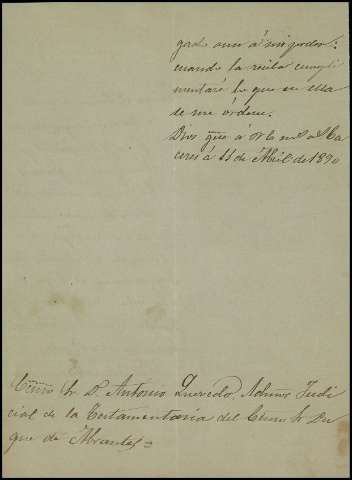 gado aun á mi poder:
cuando la reciba cumpli
mentaré lo que en ella
se me órdena.
Dios gue á V. E. ms. as. Ca
ceres á 11 de Abril de 1890
Excmo Sr. D. Antonio Quevedo, Admor Judi
cial de la Testamentaria del Excmo Sr. Du
que de Abrantes=